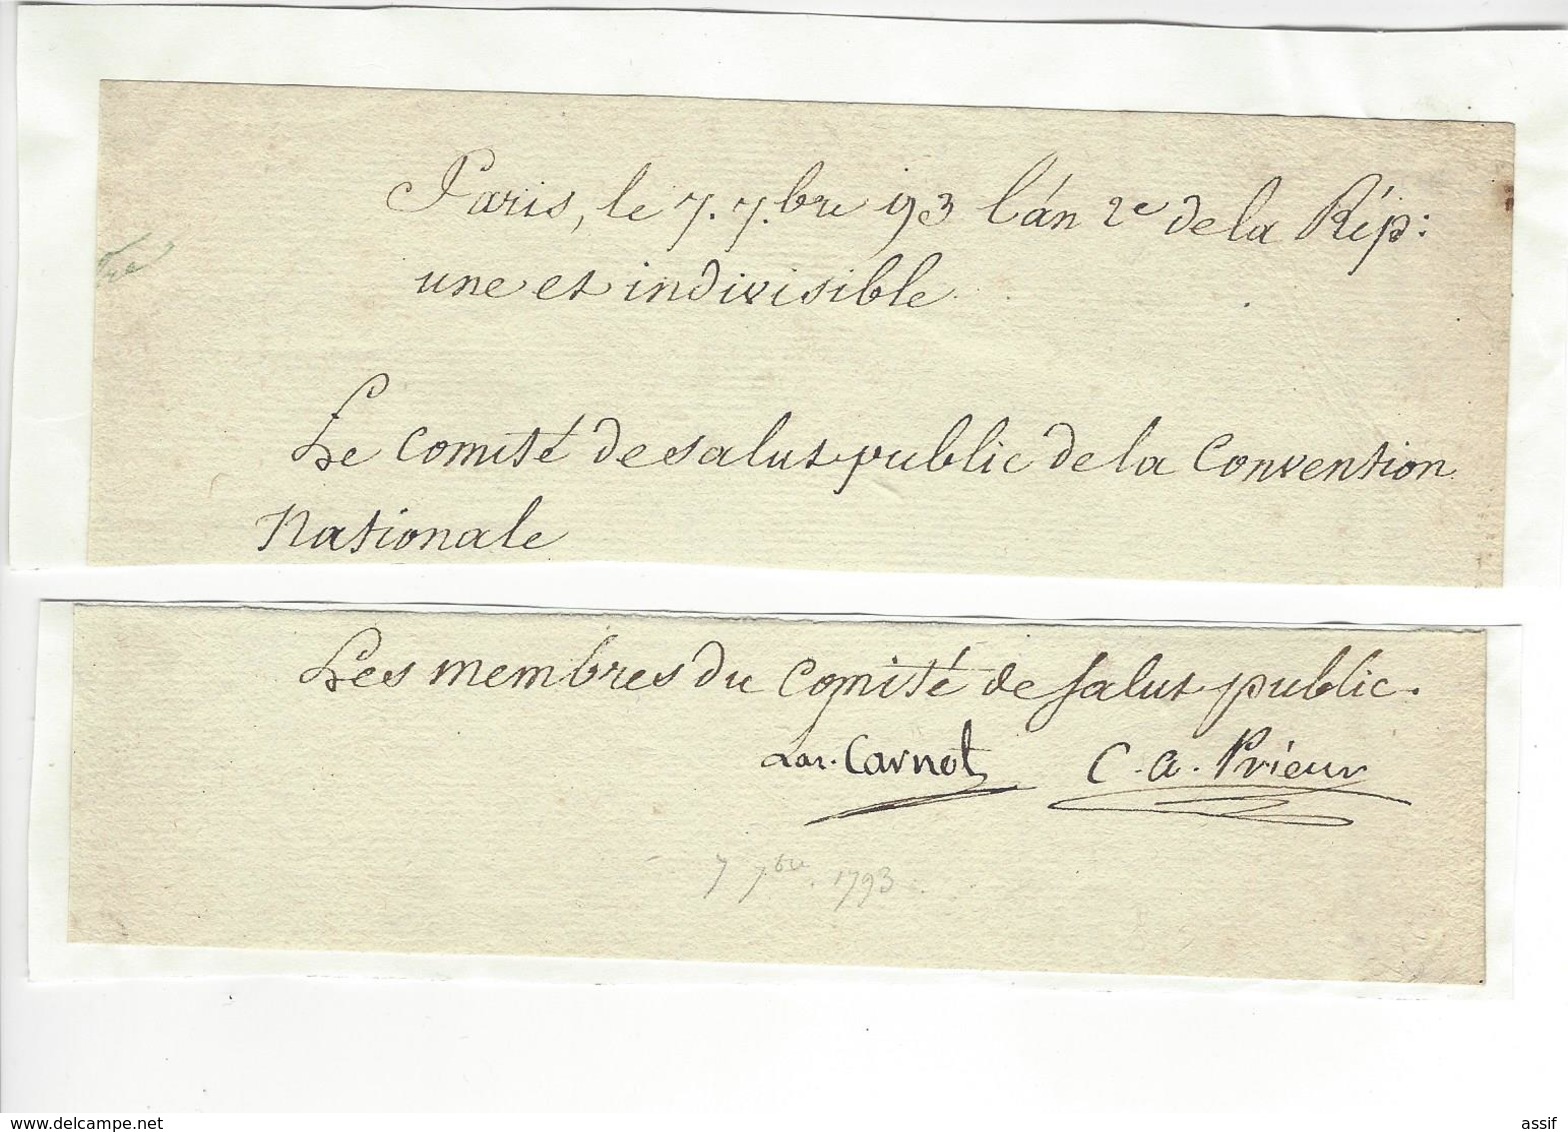 Paris, le 7. 7.bre 93 l'án 2e de la Rép:
une et indivisible
Le Comité de salut public de la Convention
Nationale
Les membres du Comité de Salut public.
Laz. Carnot C. a. Prieur
7 7bre. 1793
www.delcampe.net
assif